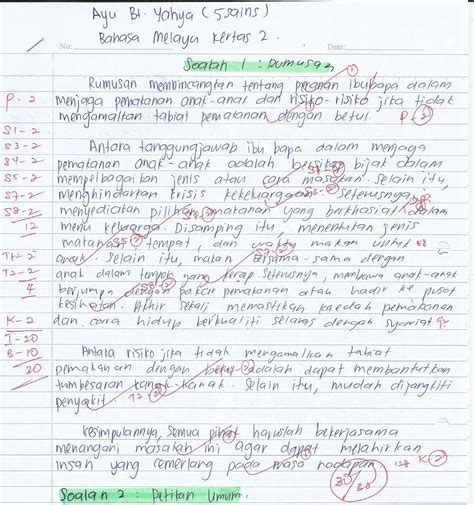 Ayu Bt. Yahya (5 Sains)
Bahasa Melayu Kertas 2.
No:
Date:
Soalan 1 : Rumusan
Rumusan membincangkan tentang peranan ibubapa dalam
P - 2 menjaga pemakanan anak-anak dan risiko-risiko jika tidak
mengamalkan tabiat pemakanan dengan betul. P-2
S1-2 Antara tanggungjawab ibu bapa dalam menjaga
S3-2
S4-2 pemakanan anak-anak adalah bersikap bijak dalam
S5-2 mempelbagaikan jenis atau cara masakan. Selain itu,
S7-2 menghindarkan krisis kekeluargaan. Seterusnya,
S8-2 menyediakan pilihan makanan yang berkhasiat dalam
12 menu keluarga. Disamping itu, menentukan jenis
makanan, tempat, dan waktu makan untuk
TH-2 anak. Selain itu, makan bersama-sama dengan
T2-2 anak dalam tempoh yang kerap. Seterusnya, membawa anak-anak
4 berjumpa dengan pakar pemakanan atau hadir ke pusat
kesihatan. Akhir sekali memastikan kaedah pemakanan
K-2 dan cara hidup berkualiti selaras dengan syariat
I-20
B-10 Antara risiko jika tidak mengamalkan tabiat
30 pemakanan dengan betul adalah dapat membantutkan
tumbesaran kanak-kanak. Selain itu, mudah dijangkiti
penyakit. T2
Kesimpulannya, semua pihak haruslah bekerjasama
menangani masalah ini agar dapat melahirkan
insan yang cemerlang pada masa hadapan. 128 K-2
30
30
Soalan 2 : Petikan Umum.